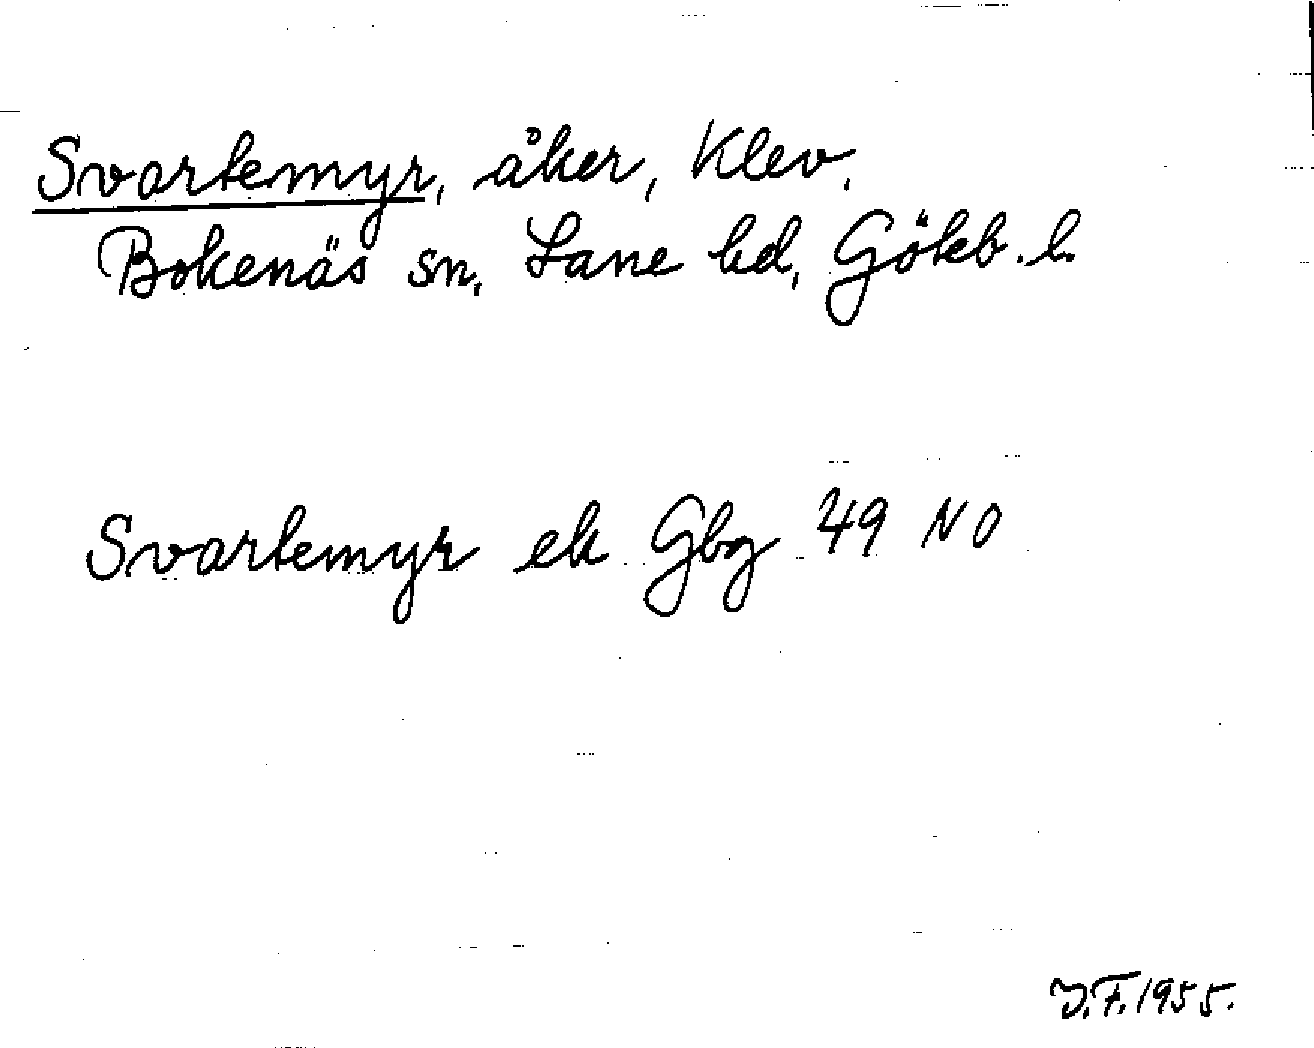 Svartemyr, åker, Klev,
Bokenäs sn, Lane hd, Göteb. l.
Svartemyr ek Gbg 49 NO
J.F. 1955.